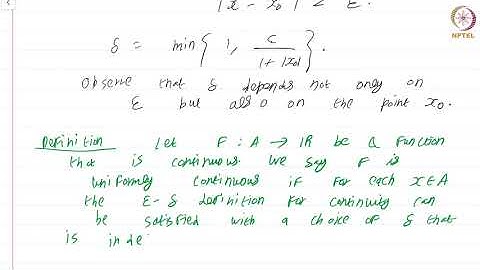 |x - x₀| < ε.
NPTEL
δ = min{ 1, ε / 1 + |x₀| }.
Observe that δ depends not only on
ε but also on the point x₀.
Definition Let F : A → IR be a function
that is continuous. We say F is
uniformly continuous if for each x ∈ A
the ε-δ definition for continuity can
be satisfied with a choice of δ that
is inde